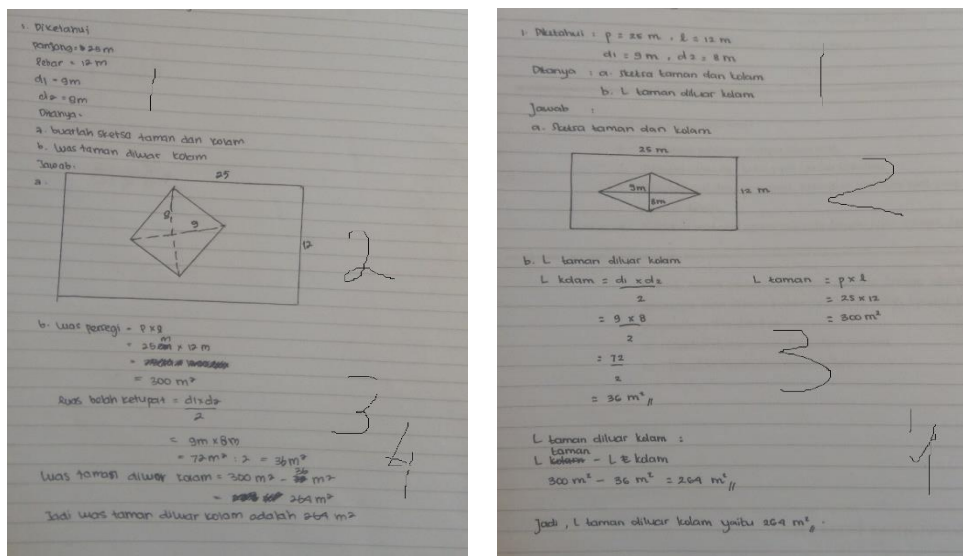 1. Diketahui
Panjang = 25 m
Lebar = 12 m
d1 = 9m
d2 = 8m
1
Ditanya -
a. buatlah sketsa taman dan kolam
b. luas taman diluar kolam
Jawab.
a.
25
8
9
12
2
b. Luas persegi = p x l
= 25 m x 12 m
= 300 m²
3
Luas belah ketupat = d1xd2
2
= 9m x 8m
= 72m² : 2 = 36m²
4
Luas taman diluar kolam = 300 m² - 36 m²
= 264 m²
Jadi luas taman diluar kolam adalah 264 m²
1. Diketahui : p = 25 m , l = 12 m
d1 = 9 m , d2 = 8 m
1
Ditanya : a. sketsa taman dan kolam
b. L taman diluar kolam
Jawab :
a. Sketsa taman dan kolam
25 m
9m
8m
12 m
2
b. L taman diluar kolam
L kolam = d1 x d2
2
= 9 x 8
2
= 72
2
= 36 m²
L taman = p x l
= 25 x 12
= 300 m²
3
4
L taman diluar kolam :
L taman - L kolam
300 m² - 36 m² = 264 m²
Jadi, L taman diluar kolam yaitu 264 m².